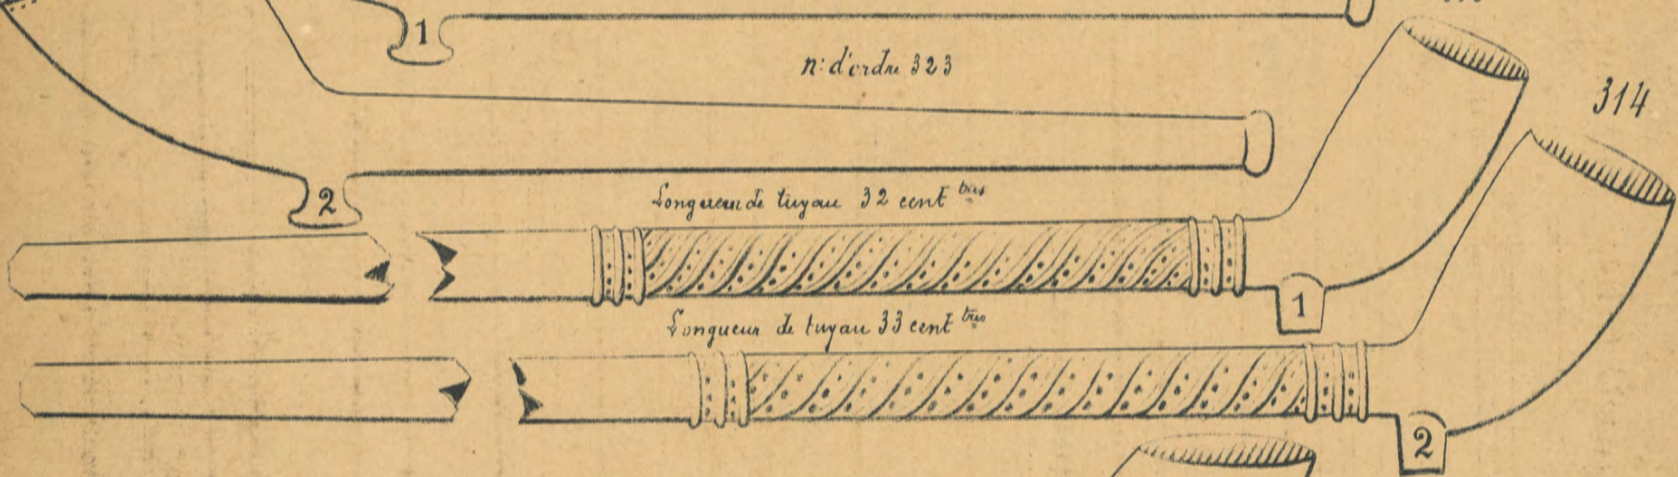 1
n: d'ordre 323
314
2
Longueur de tuyau 32 cent tres
1
Longueur de tuyau 33 cent tres
2